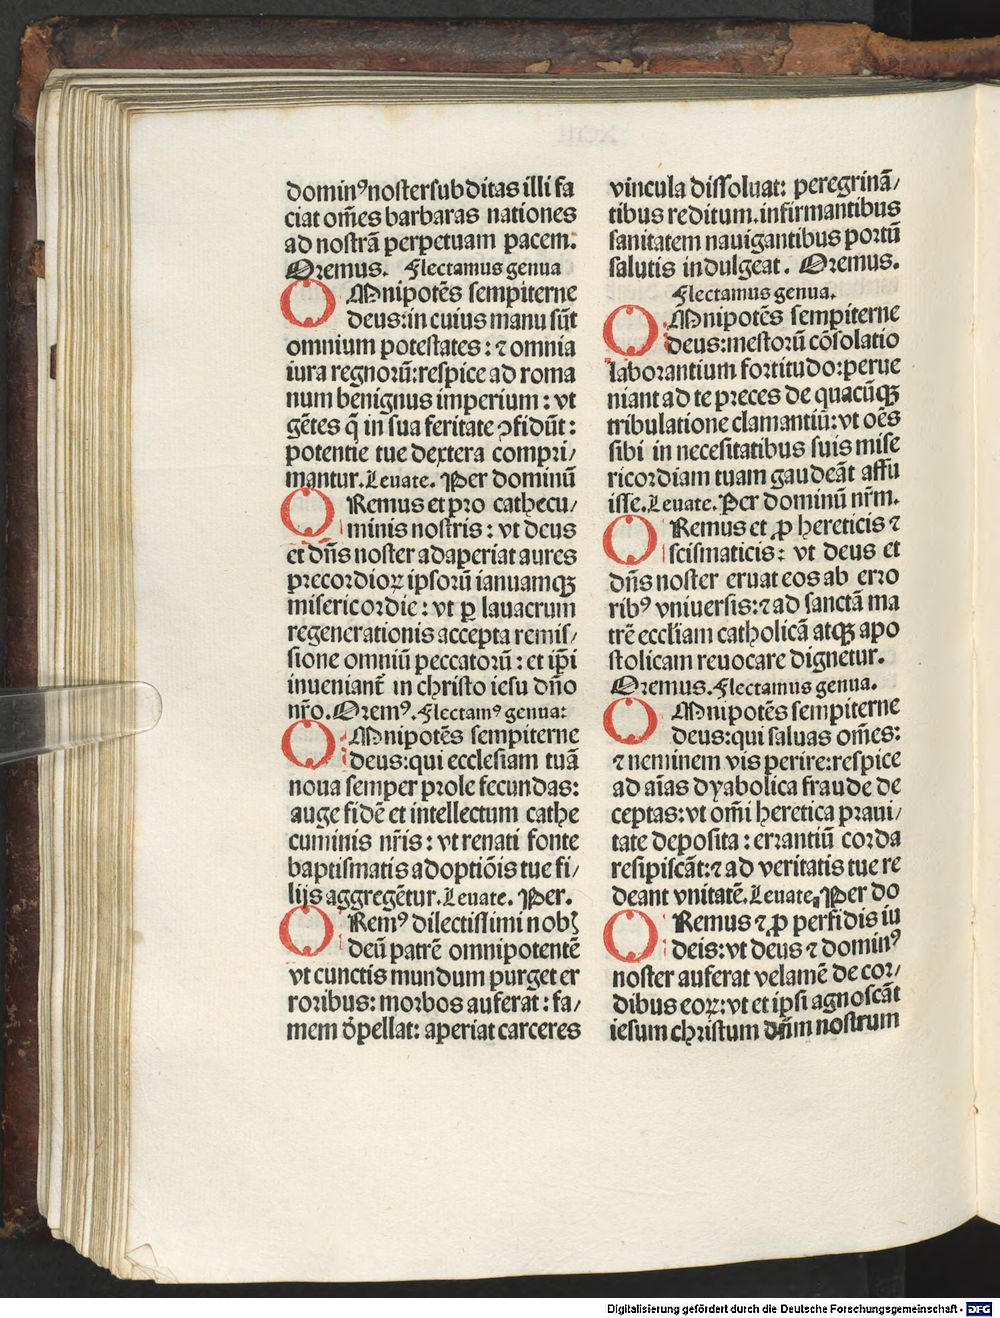 dominꝰ noster subditas illi fa
ciat om̄es barbaras nationes
ad nostrā perpetuam pacem.
Oremus. Flectamus genua
OMnipotēs sempiterne
deus: in cuius manu sūt
omnium potestates: ⁊ omnia
iura regnorū: respice ad roma
num benignus imperium: vt
gētes q̄ in sua feritate ꝯfidūt:
potentie tue dextera compri/
mantur. Leuate. Per dominū
ORemus et pro cathecu/
minis nostris: vt deus
et dn̄s noster adaperiat aures
precordioꝝ ipsorū ianuamqꝫ
misericordie: vt ꝑ lauacrum
regenerationis accepta remis/
sione omniū peccatorū: et ip̄i
inueniant̄ in christo iesu dn̄o
nr̄o. Oremꝰ. Flectamꝰ genua:
OMnipotēs sempiterne
deus: qui ecclesiam tuā
noua semper prole fecundas:
auge fidē et intellectum cathe
cuminis nr̄is: vt renati fonte
baptismatis adoptiōis tue fi/
lijs aggregētur. Leuate. Per.
ORemꝰ dilectissimi nobꝫ
deū patrē omnipotentē
vt cunctis mundum purget er
roribus: morbos auferat: fa/
mem d̄pellat: aperiat carceres
vincula dissoluat: peregrinā/
tibus reditum. infirmantibus
sanitatem nauigantibus portū
salutis indulgeat. Oremus.
Flectamus genua.
OMnipotēs sempiterne
deus: mestorū cōsolatio
laborantium fortitudo: perue
niant ad te preces de quacūqꝫ
tribulatione clamantiū: vt oēs
sibi in necesitatibus suis mise
ricordiam tuam gaudeāt affu
isse. Leuate. Per dominū nr̄m.
ORemus et ꝓ hereticis ⁊
scismaticis: vt deus et
dn̄s noster eruat eos ab erro
ribꝰ vniuersis: ⁊ ad sanctā ma
trē eccl̄iam catholicā atqꝫ apo
stolicam reuocare dignetur.
Oremus. Flectamus genua.
OMnipotēs sempiterne
deus: qui saluas om̄es:
⁊ neminem vis perire: respice
ad aīas dyabolica fraude de
ceptas: vt om̄i heretica praui/
tate deposita: errantiū corda
resipiscāt: ⁊ ad veritatis tue re
deant vnitatē. Leuate. Per do
ORemus ⁊ ꝓ perfidis iu
deis: vt deus ⁊ dominꝰ
noster auferat velamē de cor/
dibus eoꝝ: vt et ipsi agnoscāt
iesum christum dn̄m nostrum
Digitalisierung gefördert durch die Deutsche Forschungsgemeinschaft - DFG